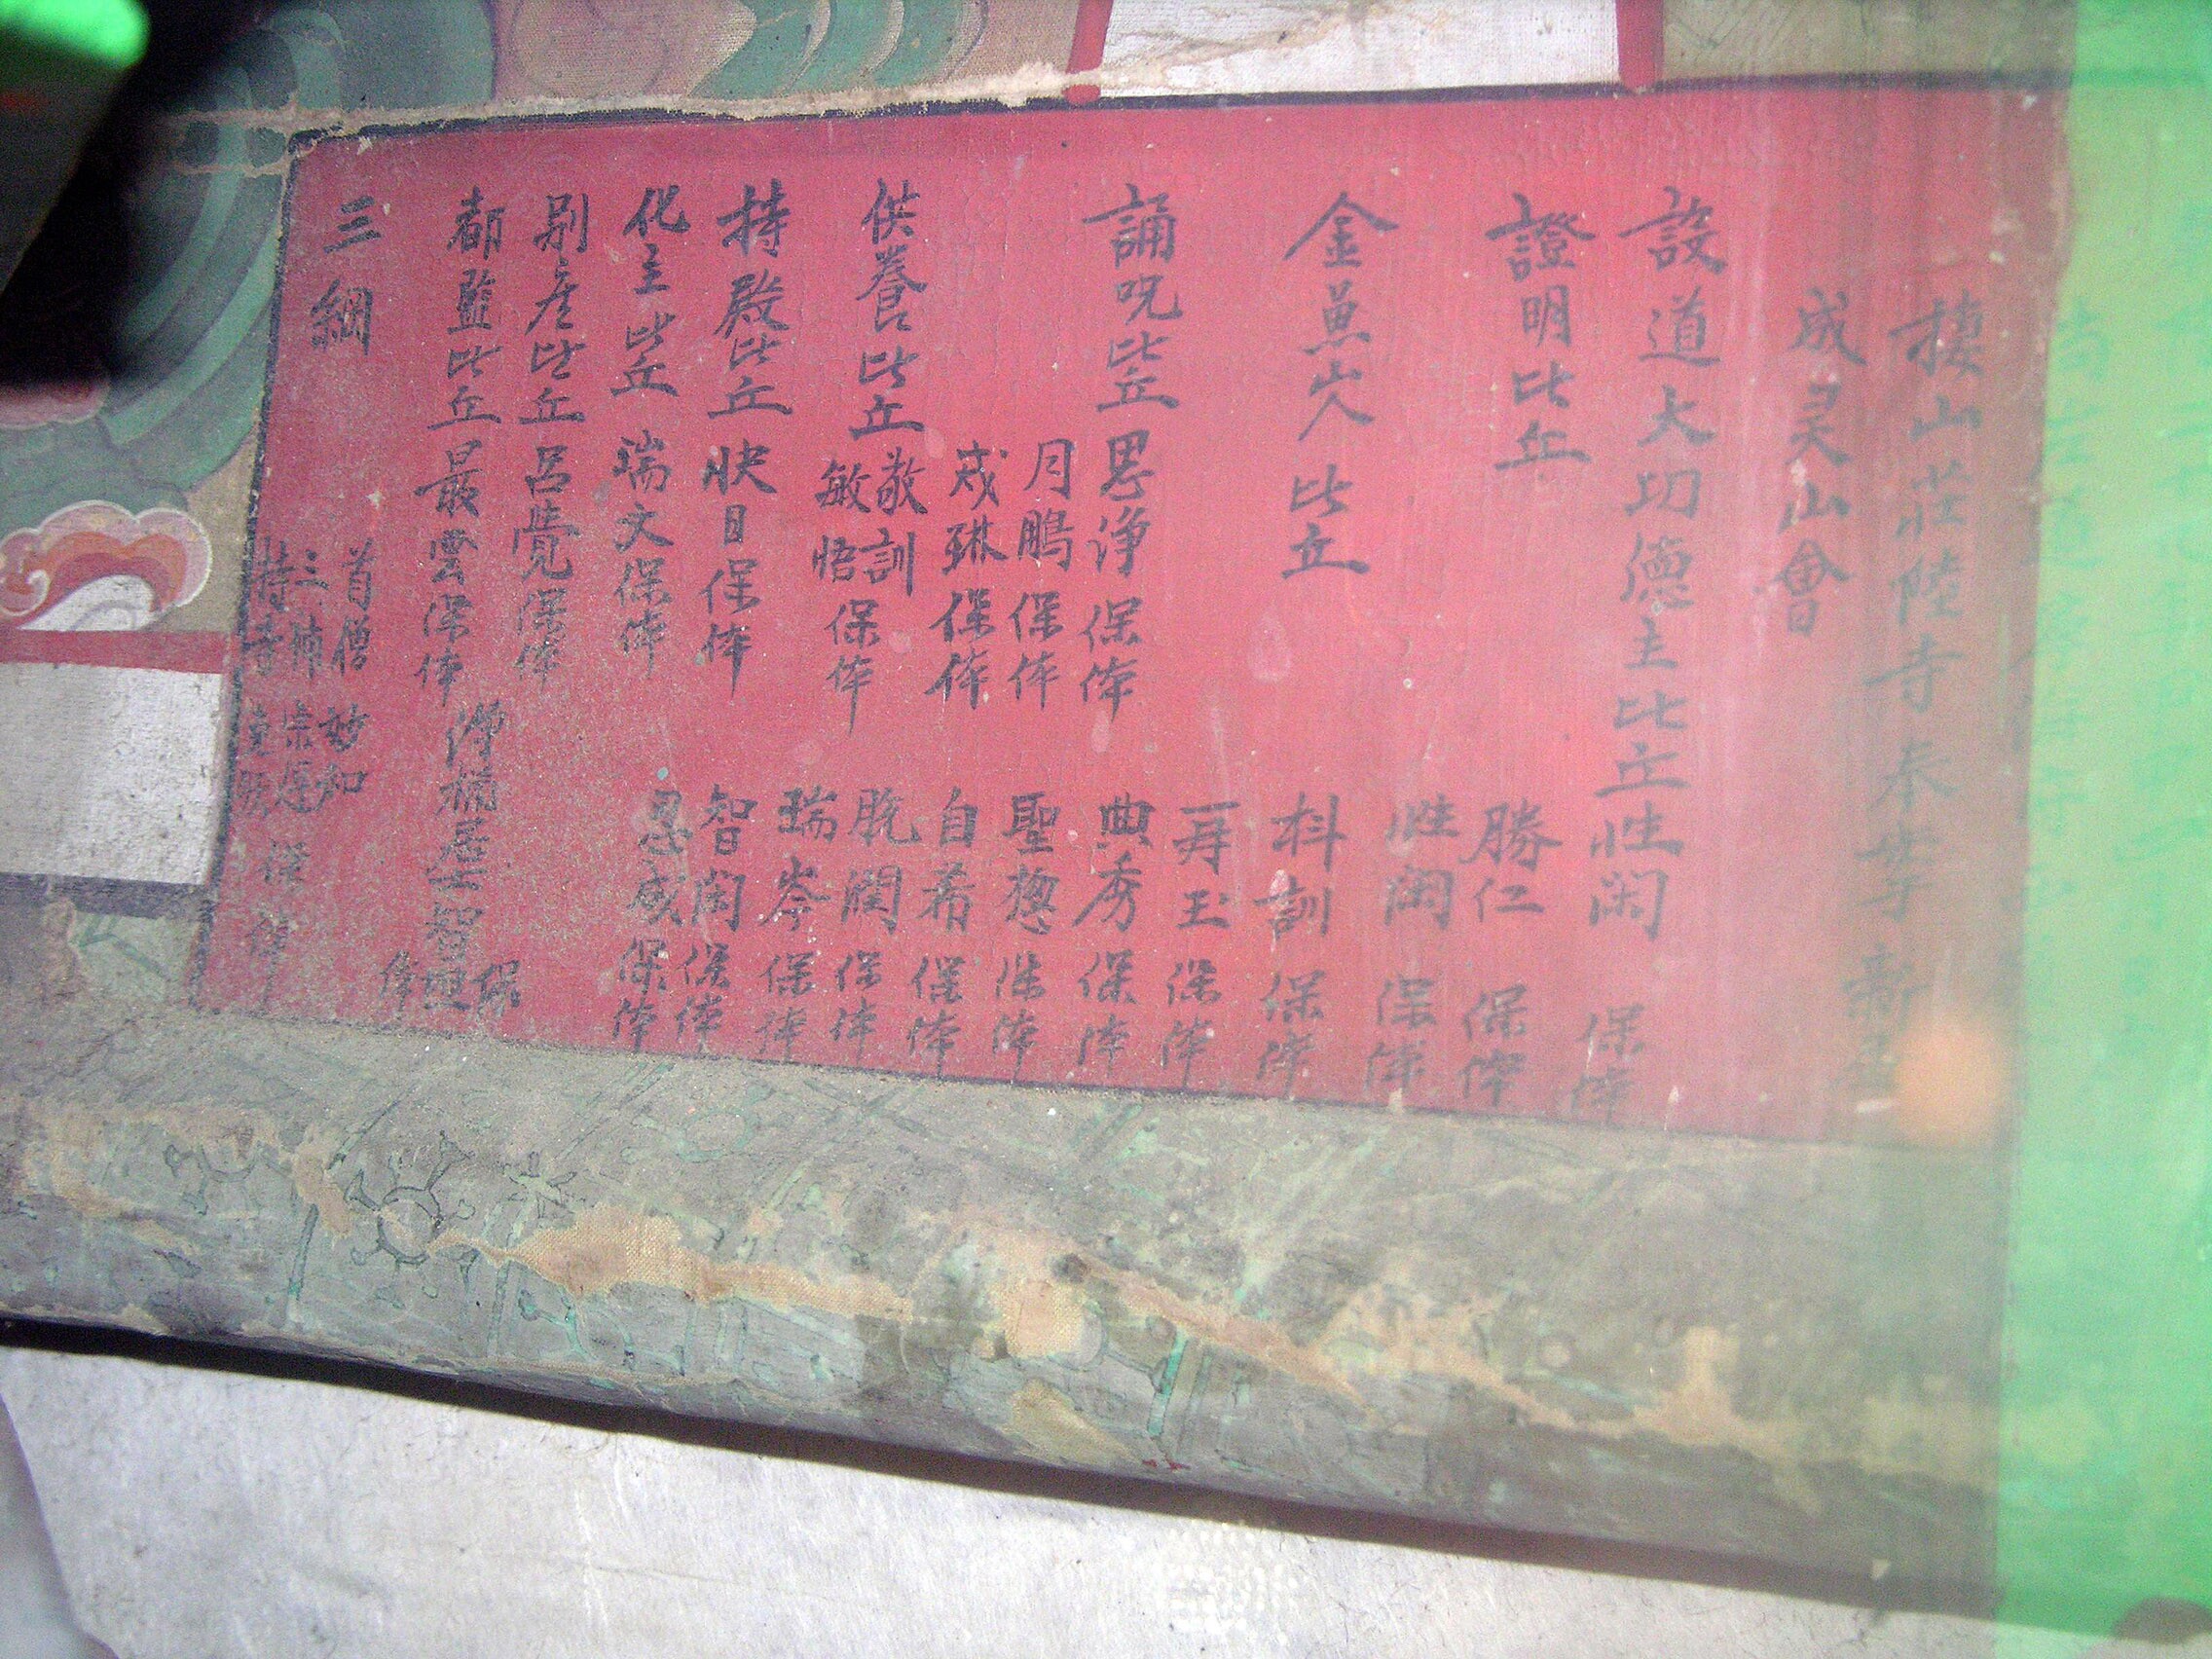 棲山莊陸寺奉安
成灵山會
設道大功德主比丘性闲 保体
證明比丘 勝仁 保体
性闲 保体
金魚山人比丘 抖訓 保体
誦呪比丘思淨保体 再玉 保体
月鵬保体 典秀保体
戒琳保体 聖摠保体
供養比丘敬訓 敏悟保体 自希保体
脱潤保体
持殿比丘快日保体 瑞岑保体
化主比丘瑞文保体 智闲保体
思威保体
別座比丘呂覺保体
都監比丘最雲保体 淨桶 智 保体
三綱 首僧 妙和
三補 宗
持寺 保体